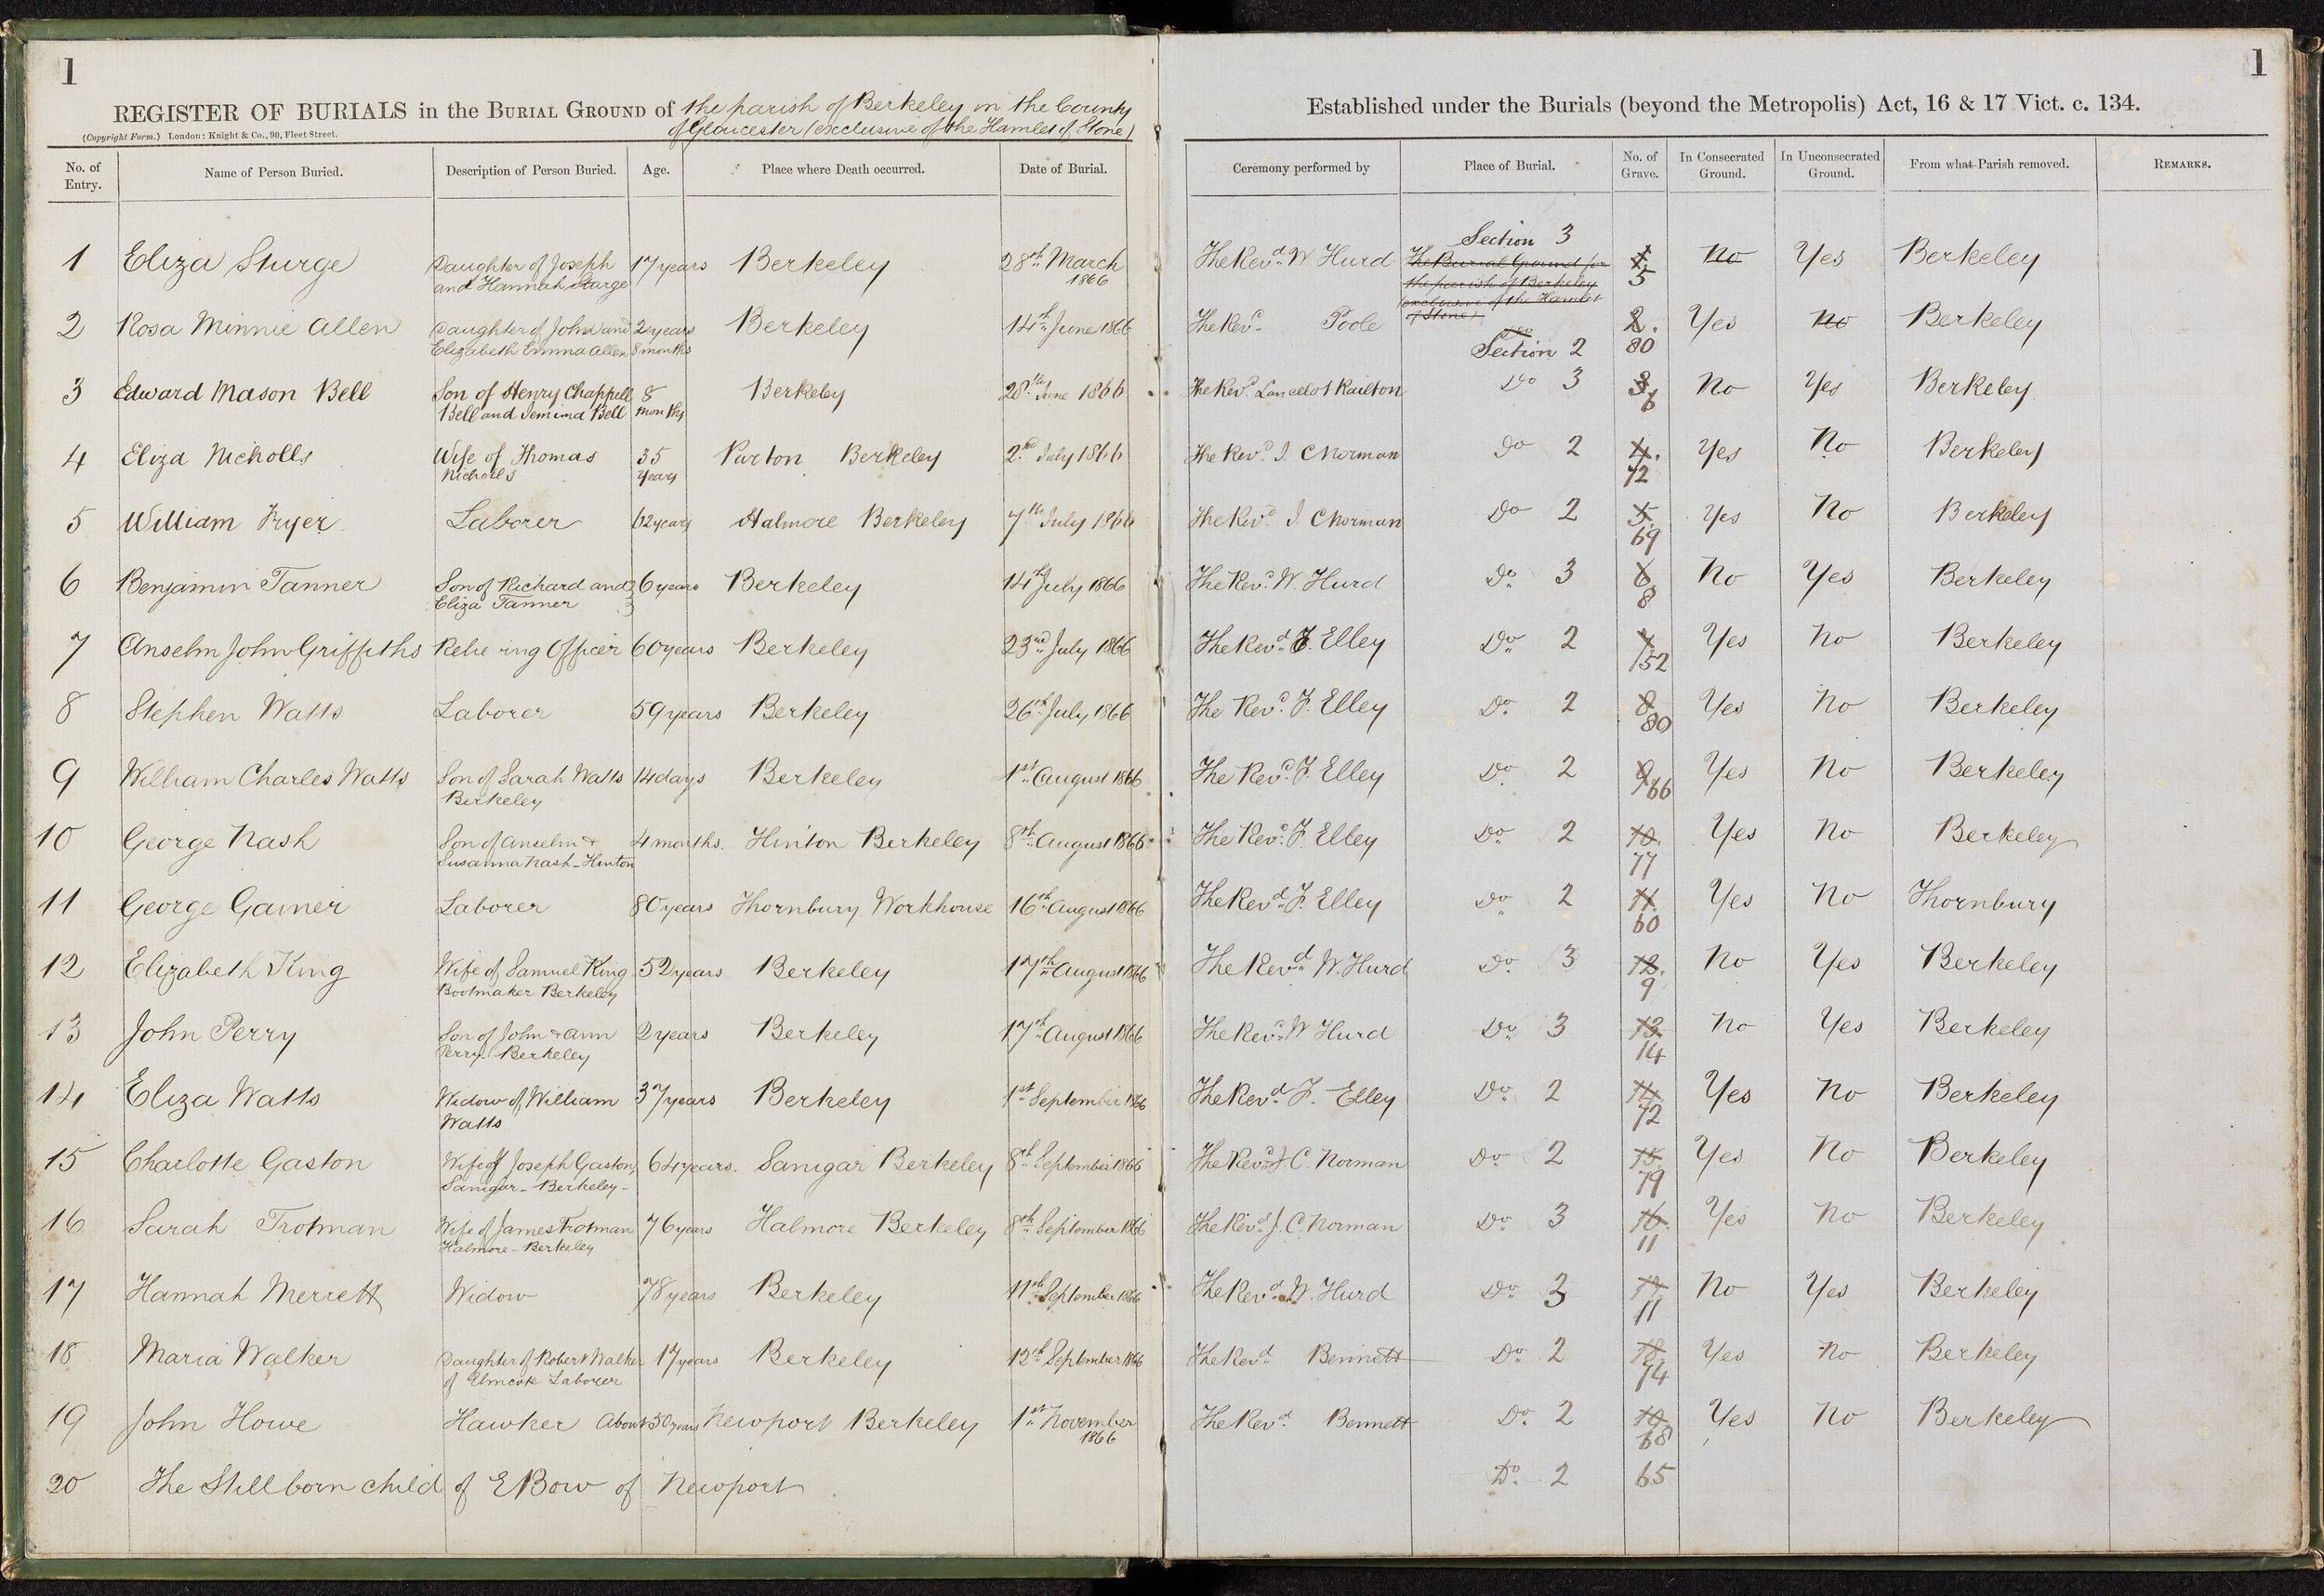 1
REGISTER OF BURIALS in the BURIAL GROUND of the parish of Berkeley in the County
of Gloucester (exclusive of the Hamlet of Stone)
(Copyright Form.) London: Knight & Co., 90, Fleet Street.
1
Established under the Burials (beyond the Metropolis) Act, 16 & 17 Vict. c. 134.
No. of Entry. Name of Person Buried. Description of Person Buried. Age. Place where Death occurred. Date of Burial. Ceremony performed by Place of Burial. No. of Grave. In Consecrated Ground. In Unconsecrated Ground. From what Parish removed. REMARKS.
1 Eliza Sturge Daughter of Joseph and Hannah Sturge 17 years Berkeley 28th March 1866 The Revd. W Hurd Section 3 The Burial Ground for the parish of Berkeley (exclusive of the Hamlet of Stone) 1 5 No Yes Berkeley
2 Rosa Minnie Allen Daughter of John and Elizabeth Emma Allen 2 years 8 months Berkeley 14th June 1866 The Revd. Poole Do Section 2 2. 80 Yes No Berkeley
3 Edward Mason Bell Son of Henry Chappell Bell and Jemima Bell 8 months Berkeley 20th June 1866 The Revd. Lancelot Railton Do 3 3 6 No Yes Berkeley
4 Eliza Nicholls Wife of Thomas Nicholls 35 years Purton Berkeley 2nd July 1866 The Revd. J. C Norman Do 2 4. 72 Yes No Berkeley
5 William Fryer Laborer 62 years Halmore Berkeley 7th July 1866 The Revd. J. C Norman Do 2 5. 69 Yes No Berkeley
6 Benjamin Tanner Son of Richard and Eliza Tanner 6 years Berkeley 14th July 1866 The Revd. W. Hurd Do 3 6 8 No Yes Berkeley
7 Anselm John Griffiths Relieving Officer 60 years Berkeley 23rd July 1866 The Revd. F. Elley Do 2 7 152 Yes No Berkeley
8 Stephen Watts Laborer 59 years Berkeley 26th July 1866 The Revd. F. Elley Do 2 8 80 Yes No Berkeley
9 William Charles Watts Son of Sarah Watts Berkeley 14 days Berkeley 1st August 1866 The Revd. F. Elley Do 2 9 66 Yes No Berkeley
10 George Nash Son of Anselm & Susanna Nash - Hinton 4 months. Hinton Berkeley 8th August 1866 The Revd. F. Elley Do 2 10. 77 Yes No Berkeley
11 George Gainer Laborer 80 years Thornbury Workhouse 16th August 1866 The Revd. F. Elley Do 2 11. 60 Yes No Thornbury
12 Elizabeth King Wife of Samuel King Bootmaker Berkeley 52 years Berkeley 17th August 1866 The Revd. W. Hurd Do 3 12. 9 No Yes Berkeley
13 John Perry Son of John & Ann Perry Berkeley 2 years Berkeley 17th August 1866 The Revd. W Hurd Do 3 13 14 No Yes Berkeley
14 Eliza Watts Widow of William Watts 37 years Berkeley 1st September 1866 The Revd. F. Elley Do 2 14 72 Yes No Berkeley
15 Charlotte Gaston Wife of Joseph Gaston, Sanigar - Berkeley - 64 years. Sanigar Berkeley 8th September 1866 The Revd. J. C. Norman Do 2 15. 79 Yes No Berkeley
16 Sarah Trotman Wife of James Trotman Halmore - Berkeley 76 years Halmore Berkeley 8th September 1866 The Revd. J. C. Norman Do 3 16. 11 Yes No Berkeley
17 Hannah Merrett Widow 78 years Berkeley 11th September 1866 The Revd. W. Hurd Do 3 17. 11 No Yes Berkeley
18 Maria Walker Daughter of Robert Walker of Elmcote Laborer 17 years Berkeley 12th September 1866 The Revd. Bennett Do 2 18. 74 Yes No Berkeley
19 John Howe Hawker About 50 years Newport Berkeley 1st November 1866 The Revd. Bennett Do 2 19 68 Yes No Berkeley
20 The Still born child of E Bow of Newport Do 2 65